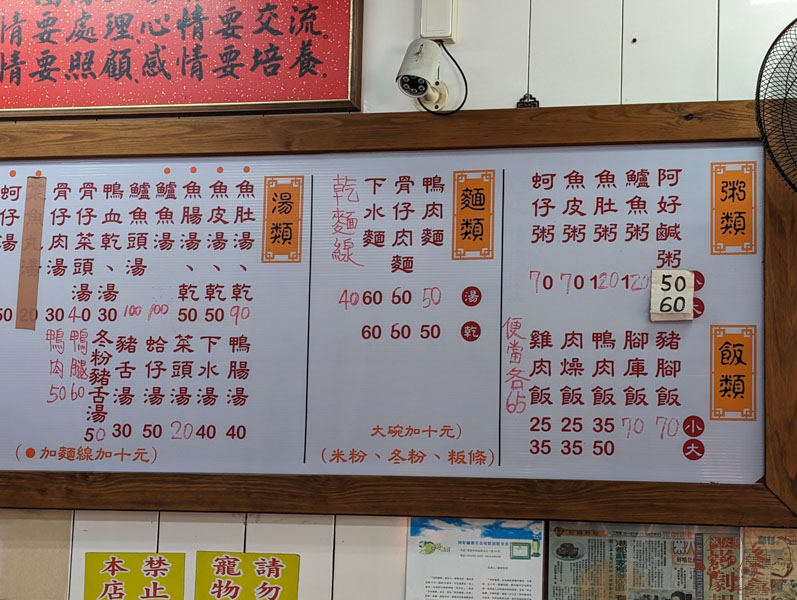 情要處理心情要交流。
情要照顧感情要培養。
粥類
阿好鹹粥 50 60
鱸魚粥 120
魚肚粥 120
魚皮粥 70
蚵仔粥 70
飯類
小
大
豬腳飯 70
腳庫飯 70
鴨肉飯 35 50
肉燥飯 25 35
雞肉飯 25 35
便當各65
麵類
湯
乾
鴨肉麵 50 50
骨仔肉麵 60 60
下水麵 60 60
乾麵線 40
大碗加十元)
(米粉、冬粉、粄條)
湯類
魚肚湯、乾 90
魚皮湯、乾 50
魚腸湯、乾 50
鱸魚湯 100
鱸魚頭湯 100
鴨血乾、湯 30
骨仔菜頭湯 40
骨仔肉湯 30
魚丸湯 20
蚵仔湯 50
鴨腸湯 40
下水湯 40
菜頭湯 20
蛤仔湯 50
豬舌湯 30
冬粉豬舌湯 50
鴨腿 60
鴨肉 50
(●加麵線加十元)
請勿
寵物
禁止
本店